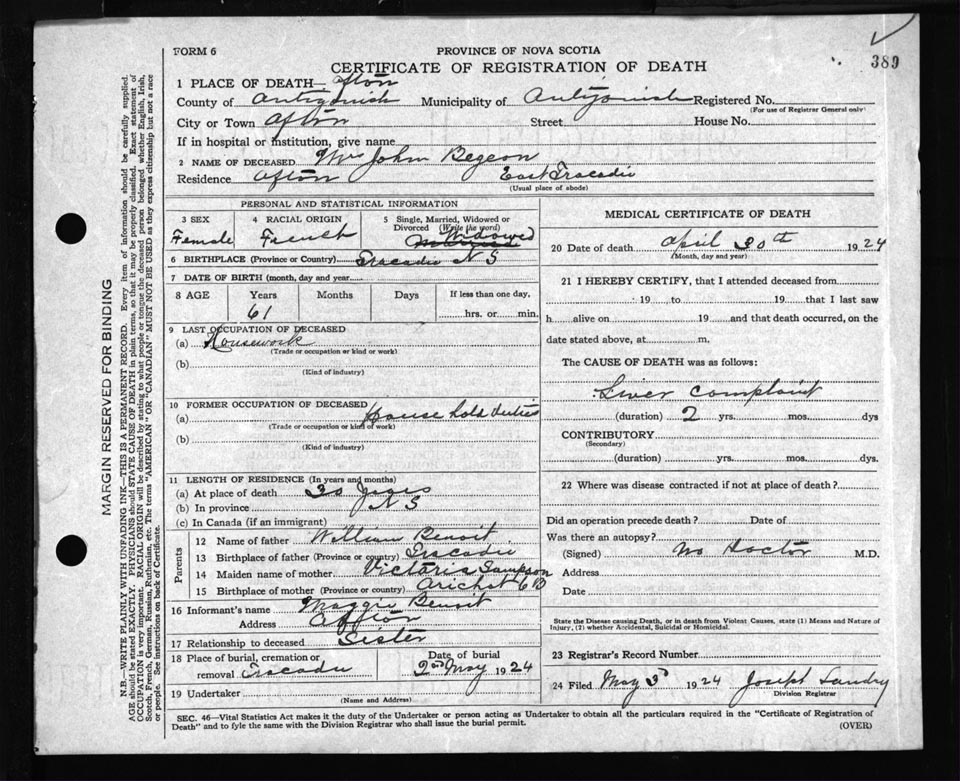 389
FORM 6
PROVINCE OF NOVA SCOTIA
CERTIFICATE OF REGISTRATION OF DEATH
1 PLACE OF DEATH— Afton
County of Antigonish Municipality of Antigonish Registered No.
(For use of Registrar General only)
City or Town Afton Street House No.
If in hospital or institution, give name
2 NAME OF DECEASED Mrs John Begeon
Residence Afton East Tracadie
(Usual place of abode)
PERSONAL AND STATISTICAL INFORMATION
3 SEX
Female
4 RACIAL ORIGIN
French
5 Single, Married, Widowed or
Divorced (Write the word)
Widowed
6 BIRTHPLACE (Province or Country) Tracadie N S
7 DATE OF BIRTH (month, day and year
8 AGE Years Months Days If less than one day,
61 hrs. or min.
9 LAST OCCUPATION OF DECEASED
(a) Housework
(Trade or occupation or kind or work)
(b)
(Kind of industry)
10 FORMER OCCUPATION OF DECEASED
(a) House hold duties
(Trade or occupation or kind of work)
(b)
(Kind of industry)
11 LENGTH OF RESIDENCE (In years and months)
(a) At place of death 30
(b) In province N S
(c) In Canada (if an immigrant)
Parents
12 Name of father William Benoit
13 Birthplace of father (Province or country) Tracadie
14 Maiden name of mother Victoria Sampson
15 Birthplace of mother (Province or country) Arichat C B
16 Informant's name Maggie Benoit
Address Afton
17 Relationship to deceased Sister
18 Place of burial, cremation or
removal Tracadie
Date of burial
2nd May 1924
19 Undertaker
(Name and Address)
MEDICAL CERTIFICATE OF DEATH
20 Date of death April 30th 1924
(Month, day and year)
21 I HEREBY CERTIFY, that I attended deceased from
19 to 19 that I last saw
h alive on 19 and that death occurred, on the
date stated above, at m.
The CAUSE OF DEATH was as follows:
Liver complaint
(duration) 2 yrs. mos. dys
CONTRIBUTORY
(Secondary)
(duration) yrs. mos. dys.
22 Where was disease contracted if not at place of death?
Did an operation precede death? Date of
Was there an autopsy?
(Signed) No Doctor M.D.
Address
Date
State the Disease causing Death, or in death from Violent Causes, state (1) Means and Nature of
Injury, (2) whether Accidental, Suicidal or Homicidal.
23 Registrar's Record Number
24 Filed May 3d 1924 Joseph Landry
Division Registrar
SEC. 46—Vital Statistics Act makes it the duty of the Undertaker or person acting as Undertaker to obtain all the particulars required in the "Certificate of Registration of
Death" and to fyle the same with the Division Registrar who shall issue the burial permit.
(OVER)
MARGIN RESERVED FOR BINDING
N.B.—WRITE PLAINLY WITH UNFADING INK—THIS IS A PERMANENT RECORD. Every item of information should be carefully supplied.
AGE should be stated EXACTLY. PHYSICIANS should STATE CAUSE OF DEATH in plain terms, so that it may be properly classified. Exact statement of
OCCUPATION is very important. RACIAL ORIGIN will be described by stating to what people or tongue the deceased person belonged whether English, Irish,
Scotch, French, German, Russian, Ruthenian, etc. The terms "AMERICAN" OR "CANADIAN" MUST NOT BE USED as they express citizenship but not a race
or people. See instructions on back of Certificate.